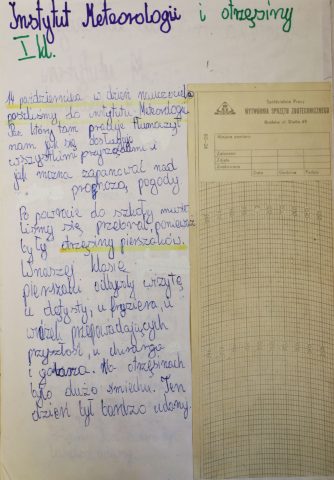 Instytut Meteorologii i otrzęsiny
I kl.
14 października w dzień nauczyciela
poszliśmy do instytutu Meteorologii
Pan który tam pracuje tłumaczył
nam jak się posługuje
wszystkimi przyrządami i
jak można zapanować nad
prognozą pogody
Po powrocie do szkoły musie
liśmy się przebrać, ponieważ
były otrzęsiny pierszaków.
W naszej klasie
pierszaki odbyły wizytę
u detysty, u fryzjera, u
wróżki przepowiadających
przyszłość, u chirurga
i golarza. Na otrzęsinach
było dużo śmiechu. Ten
dzień był bardzo udany.
Spółdzielnia Pracy
WYTWÓRNIA SPRZĘTU ZOOTECHNICZNEGO
Kraków, ul. Wielka
Miejsce pomiaru
Założono
Zdjęto
Data
Godzina